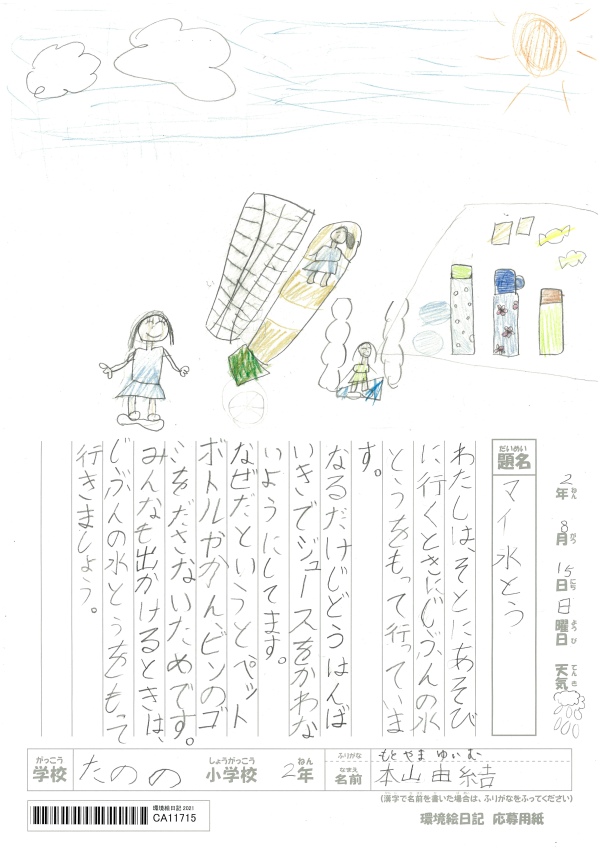 2年 8月 15日 日曜日 天気
ねん がつ にち ようび てんき
だいめい
題名 マイ水とう
わたしは、そとにあそび
に行くときにじぶんの水
とうをもって行っていま
す。
なるだけじどうはんば
いきでジュースをかわな
いようにしてます。
なぜだというとペット
ボトルやかん、ビンのゴ
ミをださないためです。
みんなも出かけるときは、
じぶんの水とうをもって
行きましょう。
がっこう しょうがっこう ねん
学校 たのの 小学校 2年
ふりがな もとやま ゆいむ
なまえ
名前 本山由結
(漢字で名前を書いた場合は、ふりがなをふってください)
環境絵日記 2021
CA11715
環境絵日記 応募用紙